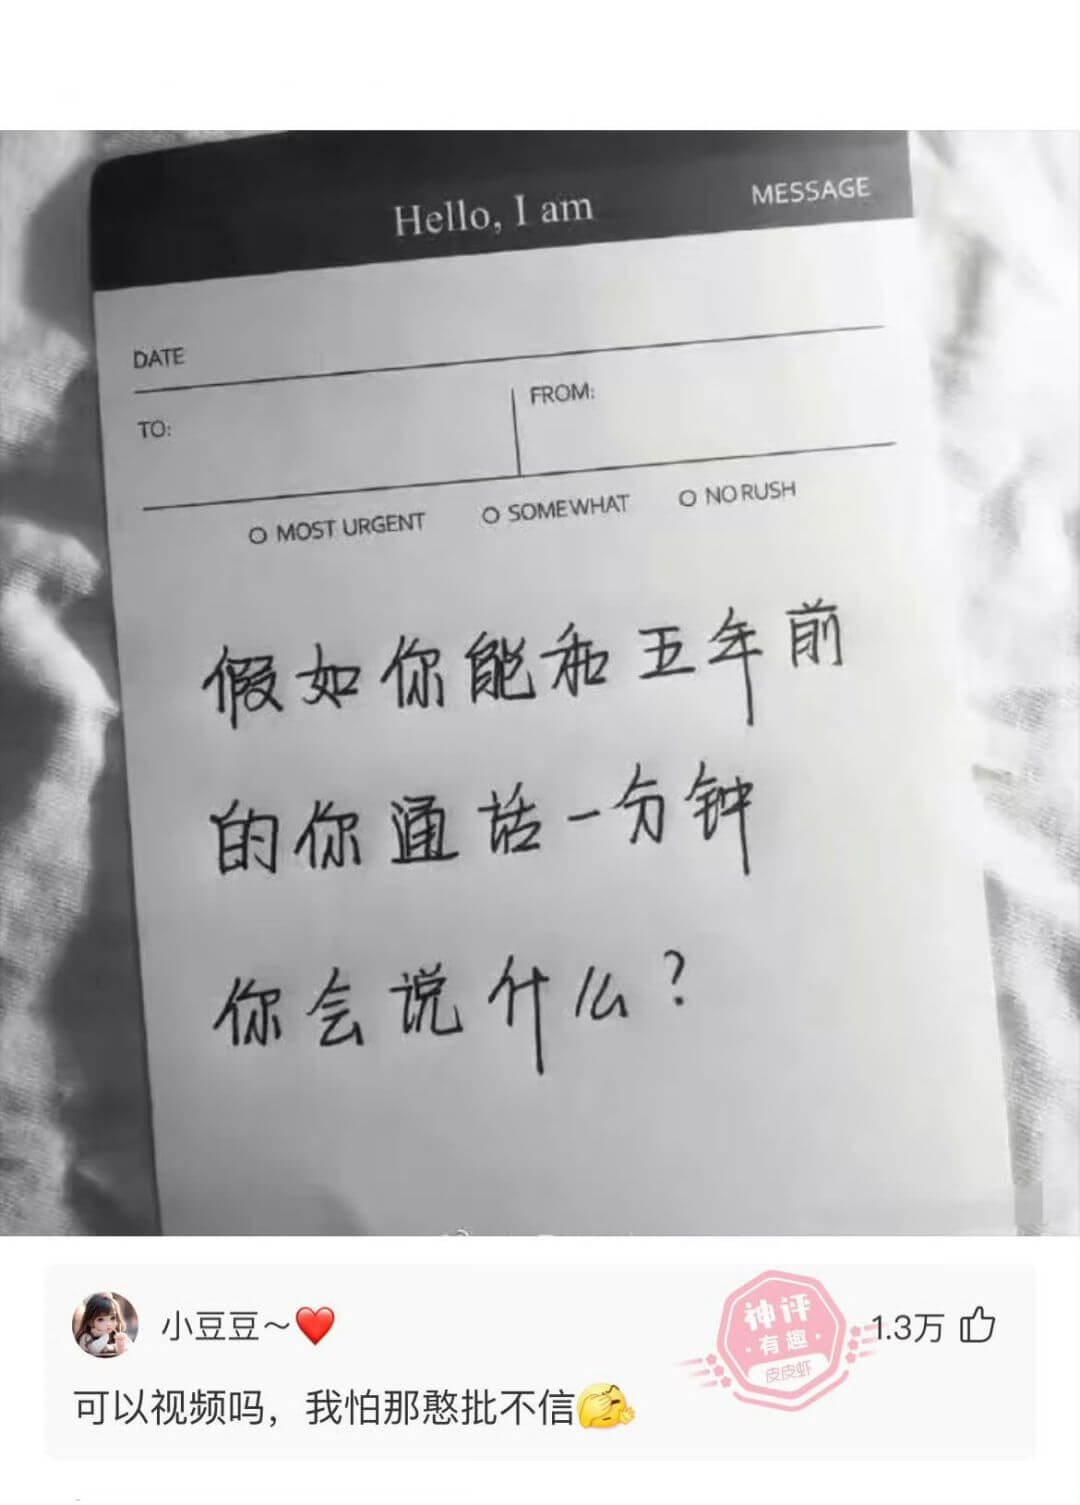 Hello, I am
MESSAGE
DATE
TO:
FROM:
MOST URGENT
SOMEWHAT
NO RUSH
假如你能和五年前
的你通话一分钟
你会说什么?
小豆豆～❤️
神评
·有趣·
皮皮虾
1.3万
可以视频吗，我怕那憨批不信